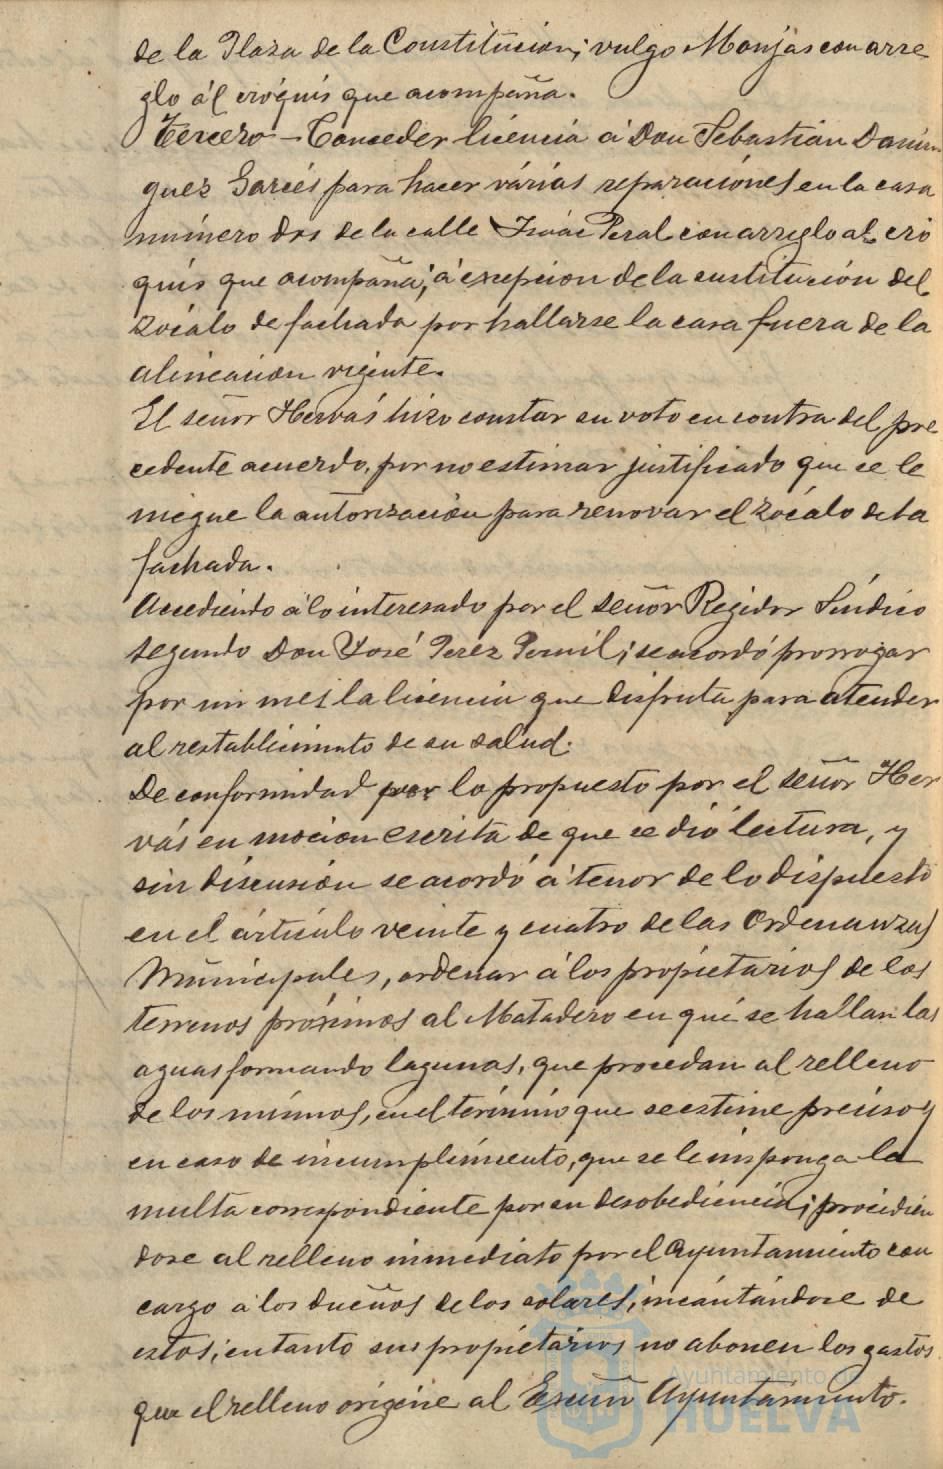 de la Plaza de la Constitución; vulgo Monjas con arre-
glo al cróquis que acompaña.
Tercero — Conceder licencia á Don Sebastián Domín-
guez Garcés para hacer várias reparaciónes en la casa
número dos de la calle Isaác Peral con arreglo al cró
quis que acompaña; á excepcion de la sustitución del
zócalo de fachada por hallarse la casa fuera de la
alineación vigente.
El señor Hervás hizo constar su voto en contra del pre-
cedente acuerdo, por no estimar justificado que se le
niegue la autorización para renovar el zócalo de la
fachada.
Accediendo á lo interesado por el señor Regidor Síndico
segundo Don José Perez Pernil; se acordó prorrogar
por un mes la licencia que disfruta para atender
al restablecimiento de su salud.
De conformidad por lo propuesto por el señor Her
vás en moción escrita de que se dió lectura, y
sin discusión se acordó á tenor de lo dispuesto
en el ártículo veinte y cuatro de las Ordenanzas
Municipales, ordenar á los propietarios de los
terrenos próximos al Matadero en qué se hallan las
aguas formando lagunas, que procedan al relleno
de los mismos, en el término que se estime preciso y
en caso de incumplimiento, que se le imponga la
multa correspondiente por su desobediencia; procedién
dose al relleno inmediato por el Ayuntamiento con
cargo á los dueños de los solares, incáutándose de
estos; en tanto sus propietarios no abonen los gastos
que el relleno origine al Excmo Ayuntamiento.
Ayuntamiento de
HUELVA